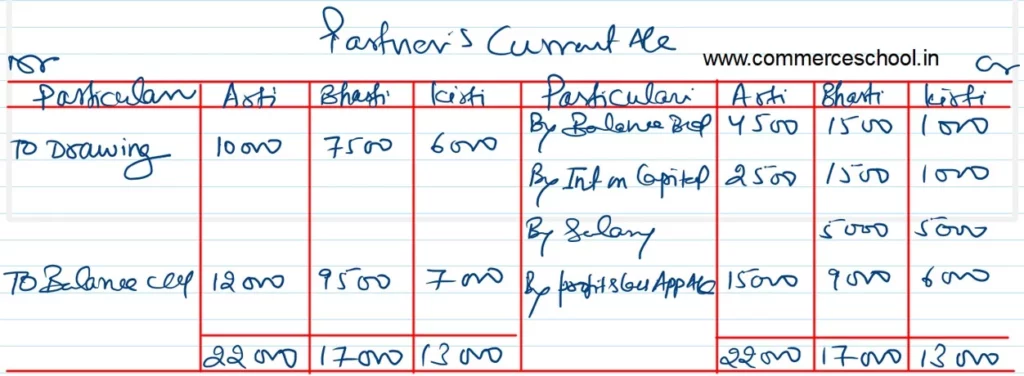 Partner's Current A/c
www.commerceschool.in
Dr Cr
Particulars Arti Bharti Kirti Particulars Arti Bharti Kirti
By Balance B/d 4500 1500 1000
To Drawing 10000 7500 6000
By Int on Capital 2500 1500 1000
By Salary 5000 5000
To Balance c/d 12000 9500 7000 By profit & loss App A/c 15000 9000 6000
22000 17000 13000 22000 17000 13000